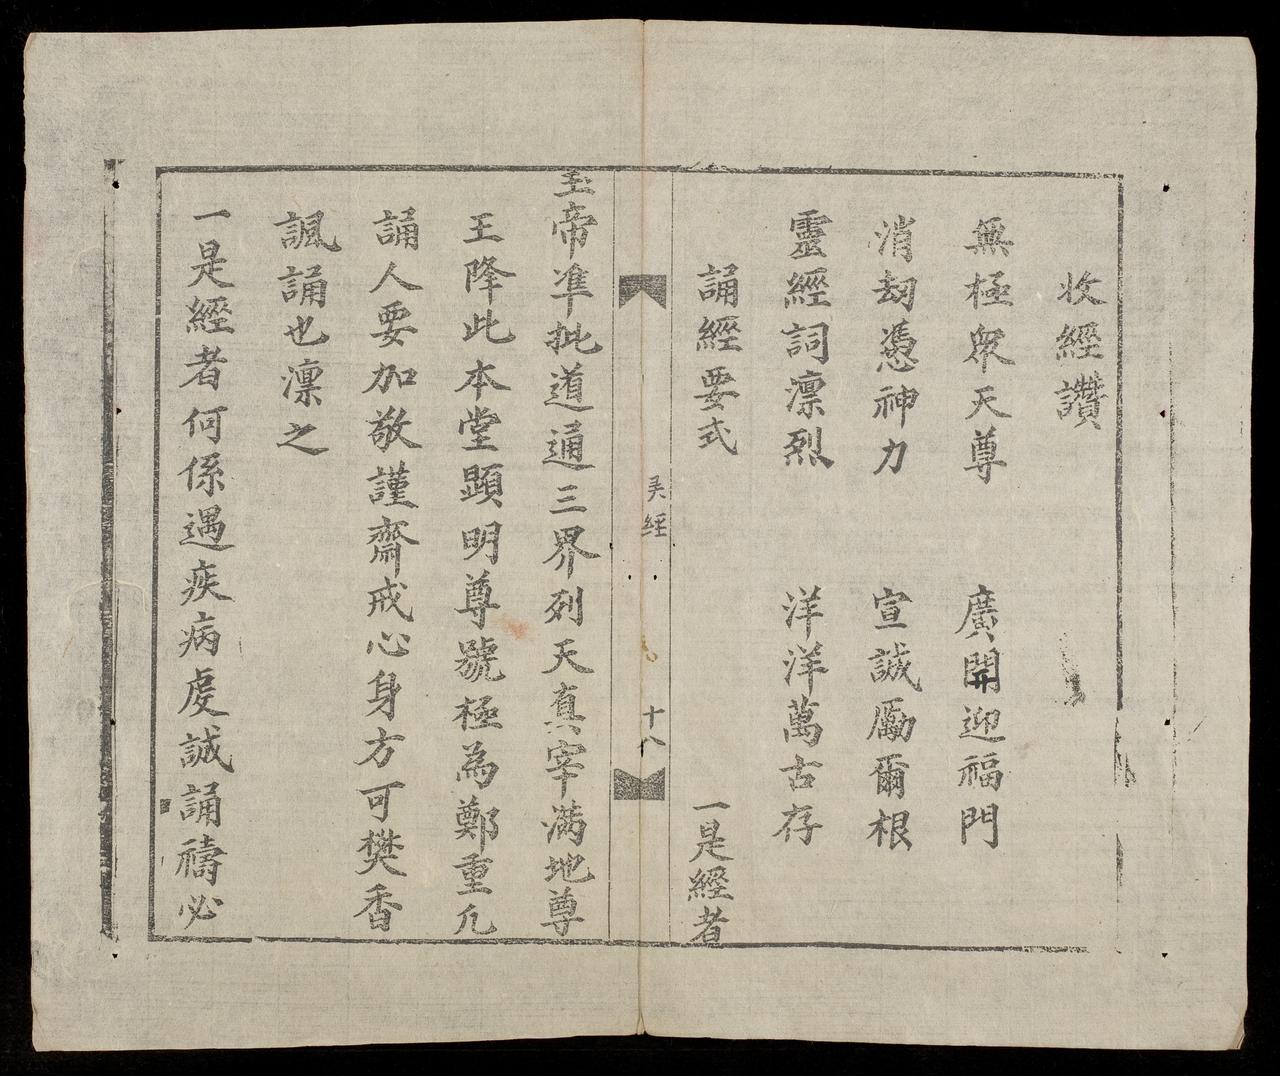 收經讚
無極眾天尊 廣開迎福門
消刼憑神力 宣誠勵爾根
靈經詞凜烈 洋洋萬古存
誦經要式 一是經者
經
十八
玉帝准批道通三界列天真宰满地尊
王降此本堂顕明尊號極為鄭重凢
誦人要加敬謹齋戒心身方可樊香
諷誦也凜之
一是經者何係遇疾病虔誠誦禱必